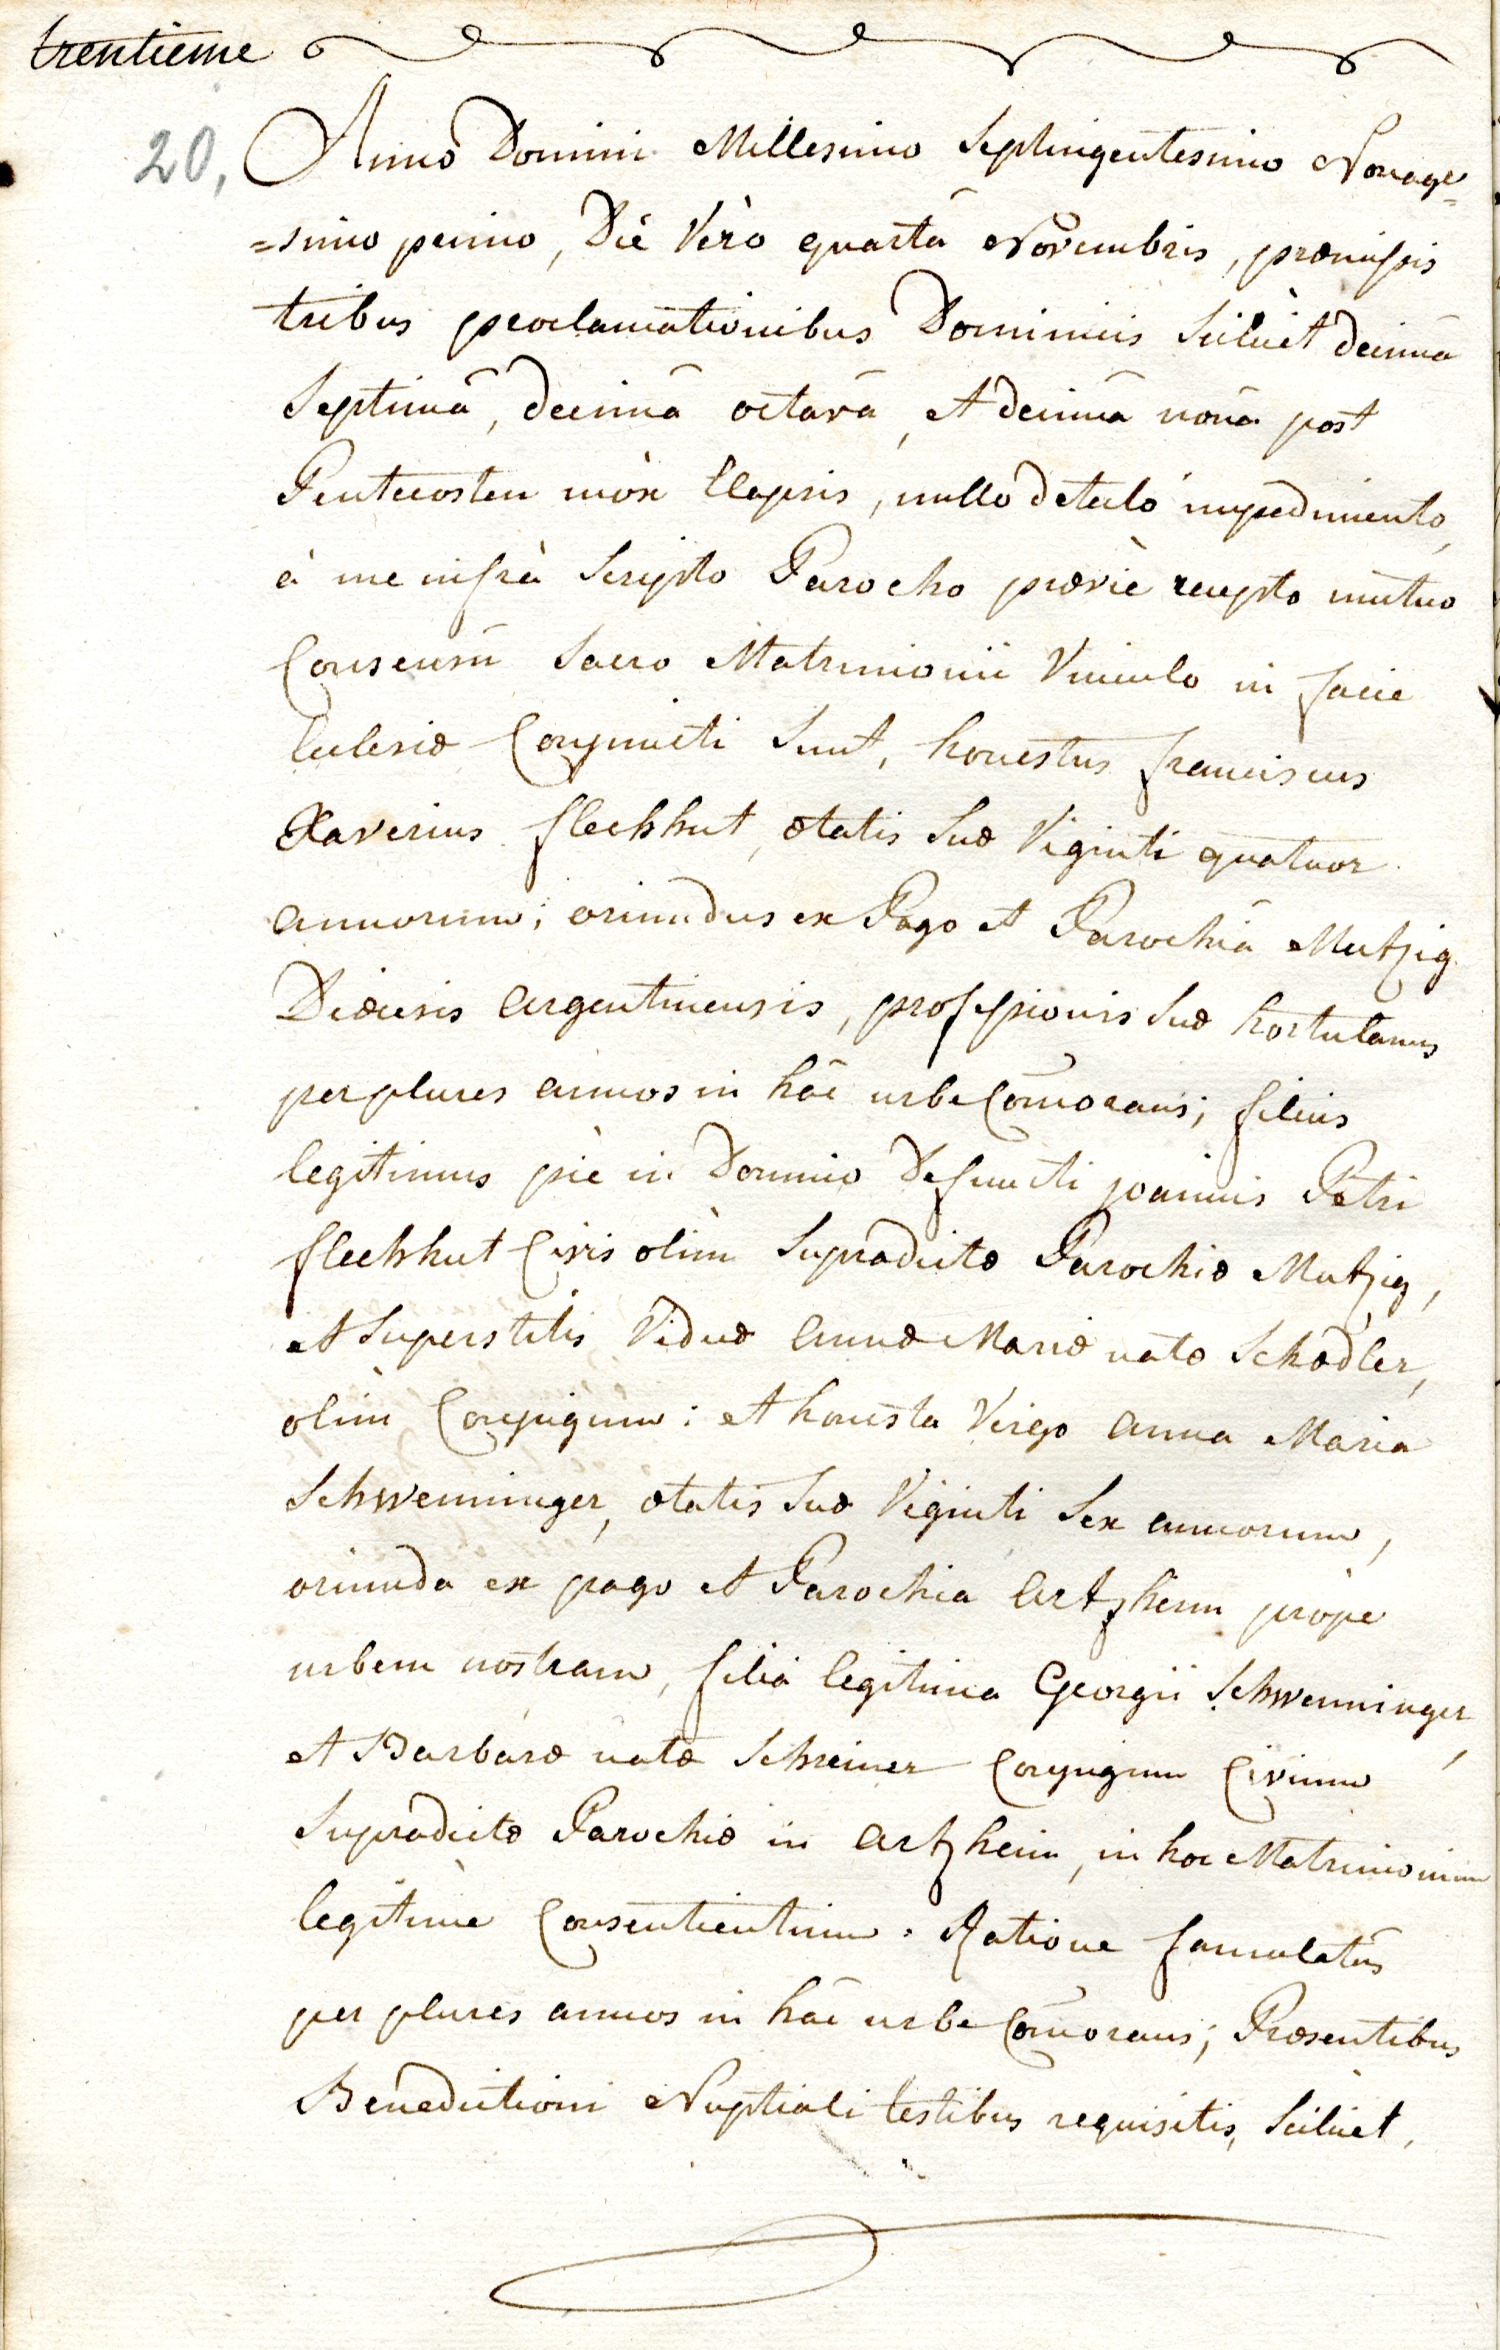 trentieme
20, Anno Domini Millesimo Septingentesimo Nonage=
=simo primo, Die Verò quartâ Novembris, præmissis
tribus proclamationibus Dominicis Scilicèt decimâ
Septimâ, decimâ octavâ, et decimâ nonâ post
Pentecosten mòx Elapsis, nullo detecto impedimento,
à me infrà Scripto Parocho præviè recepto mutuo
Consensu Sacro Matrimonii Vinculo in facie
Ecclesiæ Conjuncti Sunt, honestus franciscus
Xaverius fleckhut, ætatis Suæ Viginti quatuor
annorum; oriundus ex Pago et Parochiâ Mutzig
Diœcesis argentinensis, professionis Suæ hortulanus
per plures annos in hâc urbe Com̄orans; filius
legitimus piè in Domino Defuncti joannis Petri
fleckhut Civis olìm Supradictæ Parochiæ Mutzig,
et Superstitis Viduæ annæ Mariæ natæ Schædler,
olìm Conjugum: et honesta Virgo anna Maria
Schwenninger, ætatis Suæ Viginti Sex annorum,
oriunda ex pago et Parochia artzheim prope
urbem nostram, filia legitima Georgii Schwenninger,
et Barbaræ natæ Schreiner Conjugum Civium
Supradictæ Parochiæ in artzheim, in hoc Matrimonium
legitimè Consentientium. Ratione famulatûs
per plures annos in hâc urbe Com̄orans; Præsentibus
Benedictioni Nuptiali testibus requisitis, Scilicet,